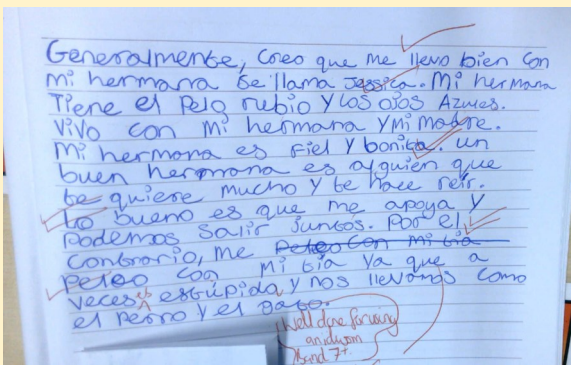 Generalmente, creo que me llevo bien con
mi hermana se llama Jessica. Mi hermana
Tiene el pelo rubio y los ojos Azules.
Vivo con mi hermana y mi madre.
Mi hermana es fiel y bonita. un
buen hermana es alguien que
te quiere mucho y te hace reír.
Lo bueno es que me apoya y
podemos salir juntos. Por el
contrario, me peleo con mi tía
peleo con mi tía ya que a
veces es estúpida y nos llevamos como
el perro y el gato.
Well done for using
an idiom
Band 7+.